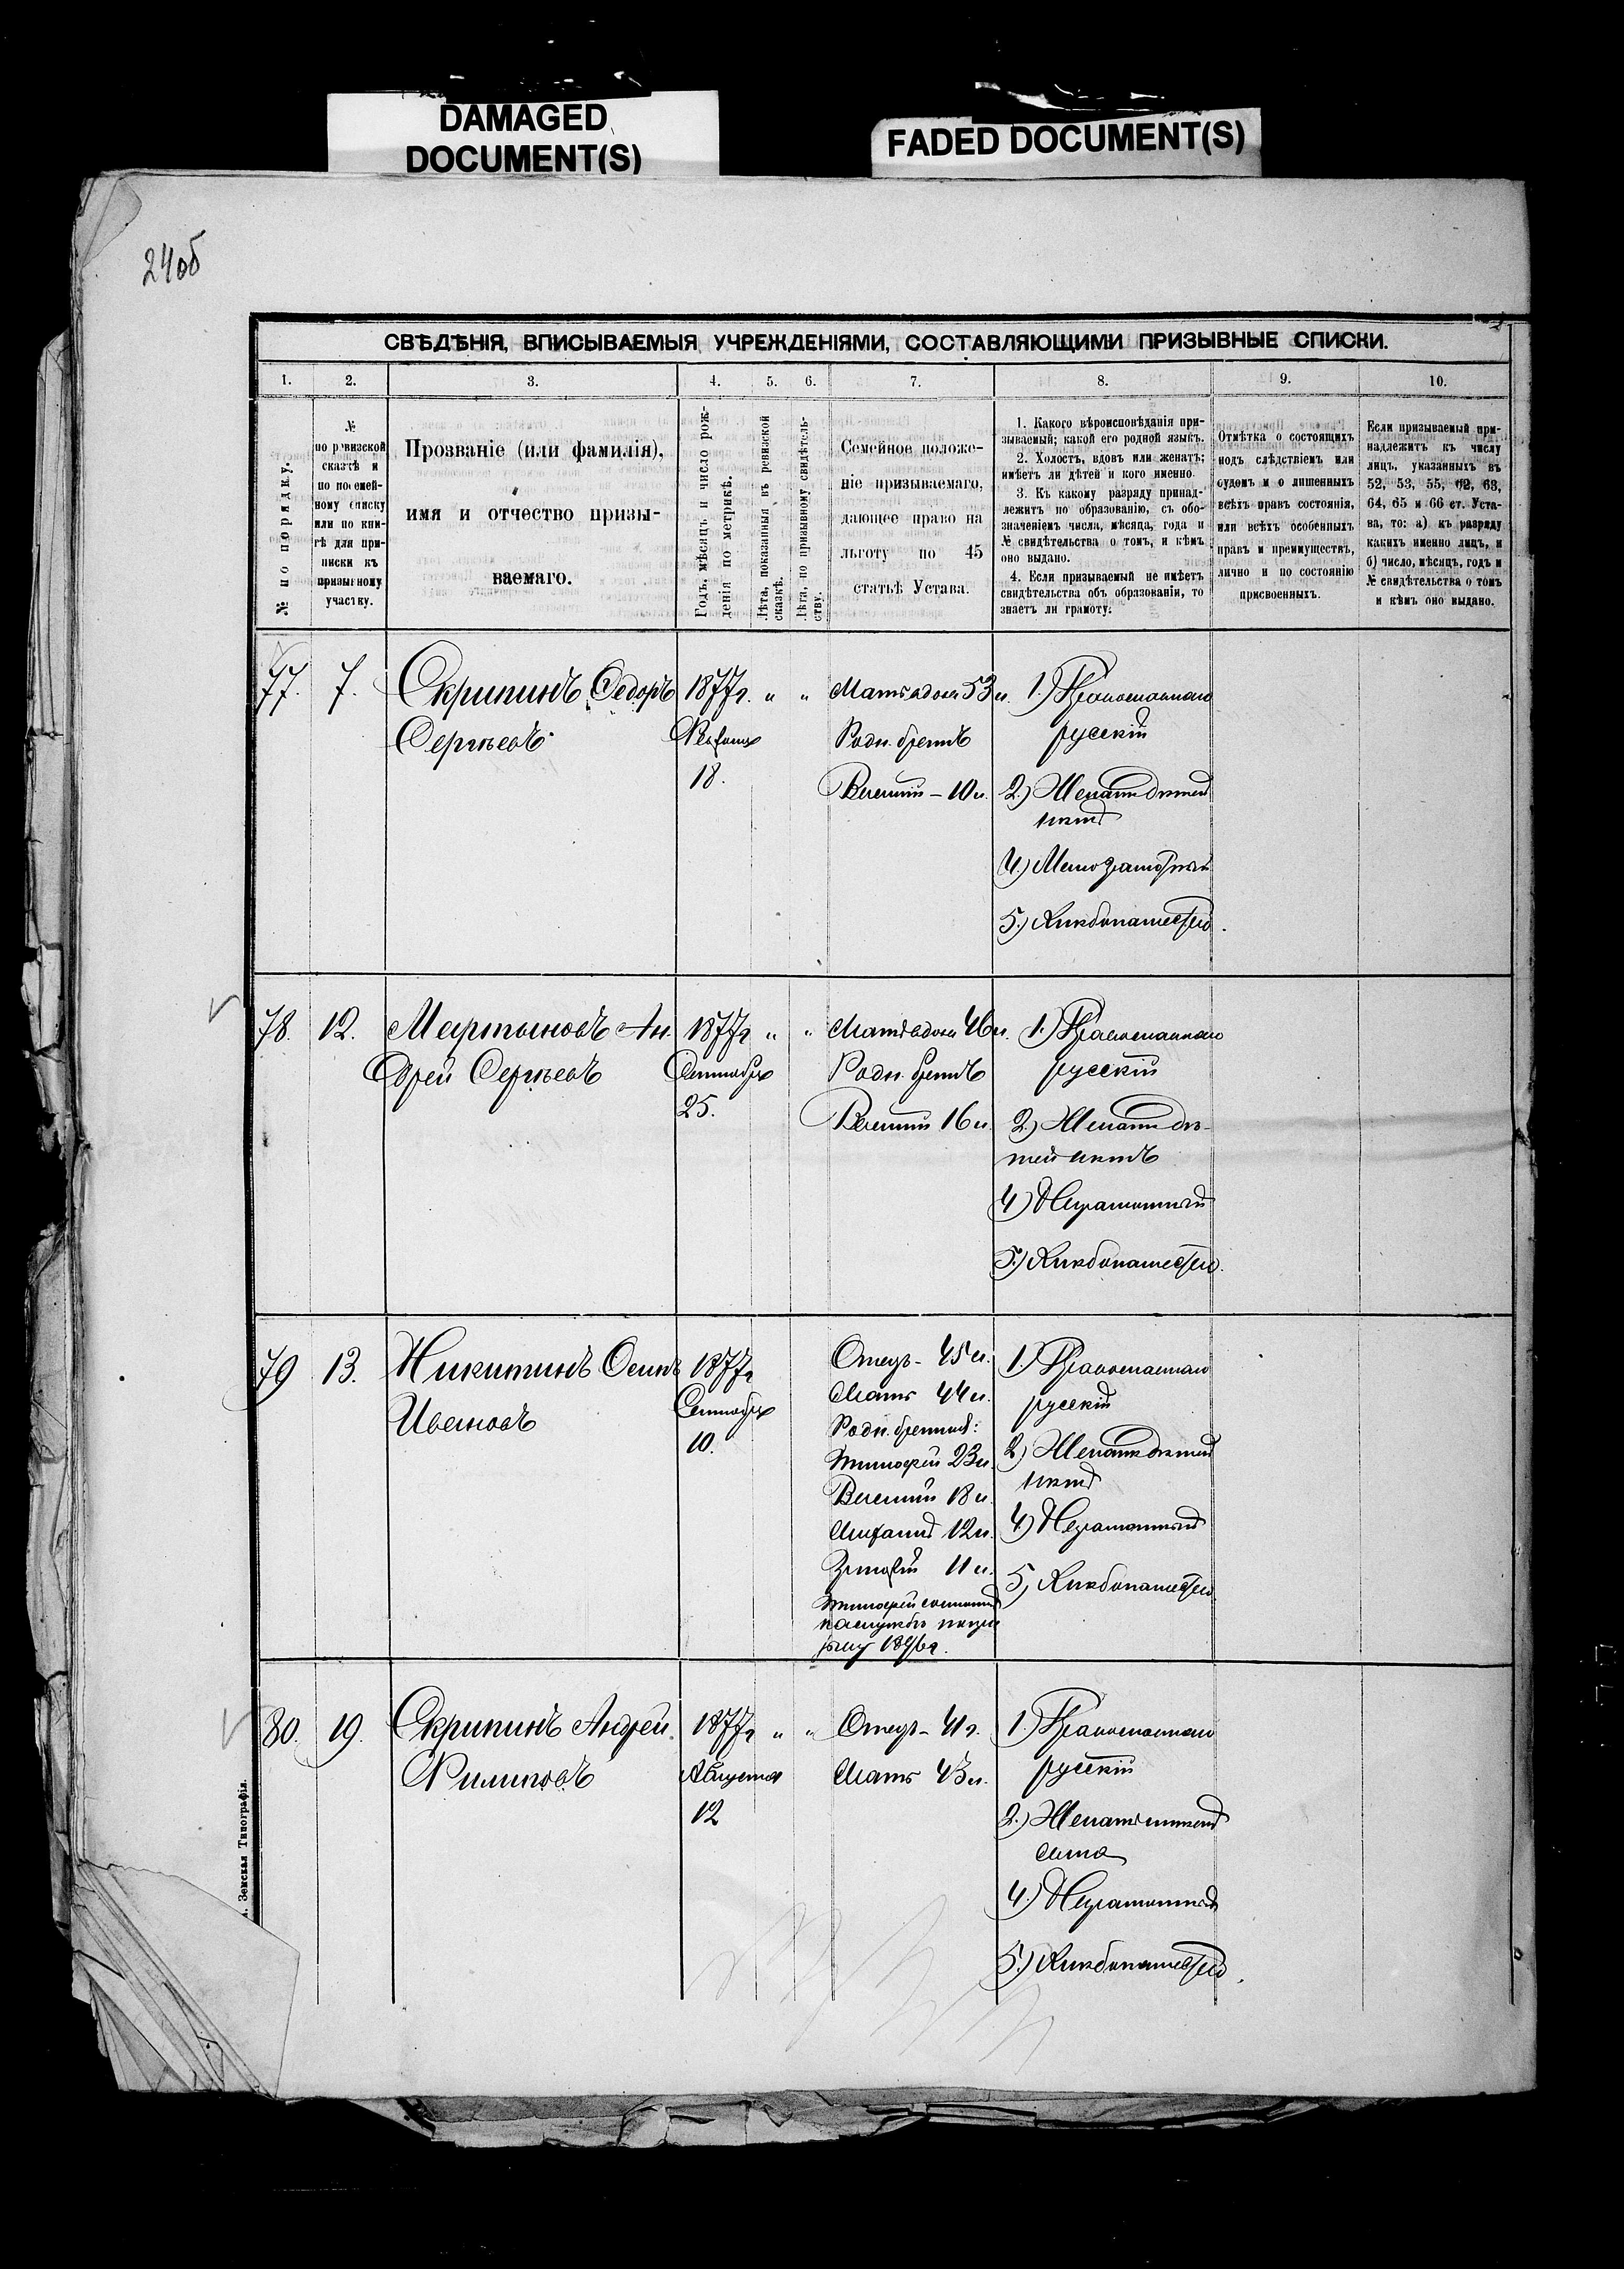 DAMAGED
DOCUMENT(S)
FADED DOCUMENT(S)
24об
СВѢДѢНІЯ, ВПИСЫВАЕМЫЯ УЧРЕЖДЕНІЯМИ, СОСТАВЛЯЮЩИМИ ПРИЗЫВНЫЕ СПИСКИ.
1. 2. 3. 4. 5. 6. 7. 8. 9. 10.
№ по порядку.
№
по ревизской
сказкѣ и
по посемей-
ному списку
или по кни-
гѣ для при-
писки къ
призывному
участку.
Прозваніе (или фамилія),
имя и отчество призы-
ваемаго.
Годъ, мѣсяцъ и число рож-
денія по метрикѣ.
Лѣта, показанныя въ ревизской
сказкѣ.
Лѣта, по призывному свидѣтель-
ству.
Семейное положе-
ніе призываемаго,
дающее право на
льготу по 45
статьѣ Устава.
1. Какого вѣроисповѣданія при-
зываемый; какой его родной языкъ.
2. Холостъ, вдовъ или женатъ;
имѣетъ ли дѣтей и кого именно
3. Къ какому разряду принад-
лежитъ по образованію, съ обо-
значеніемъ числа, мѣсяца, года и
№ свидѣтельства о томъ, и кѣмъ
оно выдано.
4. Если призываемый не имѣетъ
свидѣтельства объ образованіи, то
знаетъ ли грамоту.
Отмѣтка о состоящихъ
подъ слѣдствіемъ или
судомъ и о лишенныхъ
всѣхъ правъ состоянія,
или всѣхъ особенныхъ
правъ и преимуществъ,
лично и по состоянію
присвоенныхъ.
Если призываемый при-
надлежитъ къ числу
лицъ, указанныхъ въ
52, 53, 55, 62, 63,
64, 65 и 66 ст. Уста-
ва, то: а) къ разряду
какихъ именно лицъ, и
б) число, мѣсяцъ, годъ и
№ свидѣтельства о томъ
и кѣмъ оно выдано.
77. 7. Скрипинъ Ѳедоръ
Сергѣевъ
1877г. " "
Февраля
18.
Мать вдова 53 л.
Родн. братъ
Василій – 10 л.
1.) Православнаго
русскій
2.) Женатъ дѣтей
нѣтъ
4.) Малограмотный
5.) Хлѣбопашество.
78. 12. Мартыновъ Ан-
дрей Сергѣевъ
1877г " "
Сентября
25.
Мать вдова 46 л.
Родн. братъ
Василій 16 л.
1.) Православнаго
русскій
2.) Женатъ дѣ-
тей нѣтъ
4.) Неграмотный
5.) Хлѣбопашество.
79 13. Никитинъ Осипъ
Ивановъ
1877г
Сентября
10.
Отецъ – 45 л.
Мать 44 л.
Родн. братья:
Тимофей 23 л.
Василій 18 л.
12 л.
11 л.
Тимофей состоитъ
на службѣ
1896г.
1.) Православнаго
русскій
2.) Женатъ дѣтей
нѣтъ
4.) Неграмотный
5.) Хлѣбопашество
80. 19. Скрипинъ Андрей
Филиповъ
1877г " "
Августа
12
Отецъ – 41 г.
Мать 43 л.
1.) Православнаго
русскій
2.) Женатъ имѣетъ
сына
4.) Неграмотный
5.) Хлѣбопашество.
Земская Типографія.